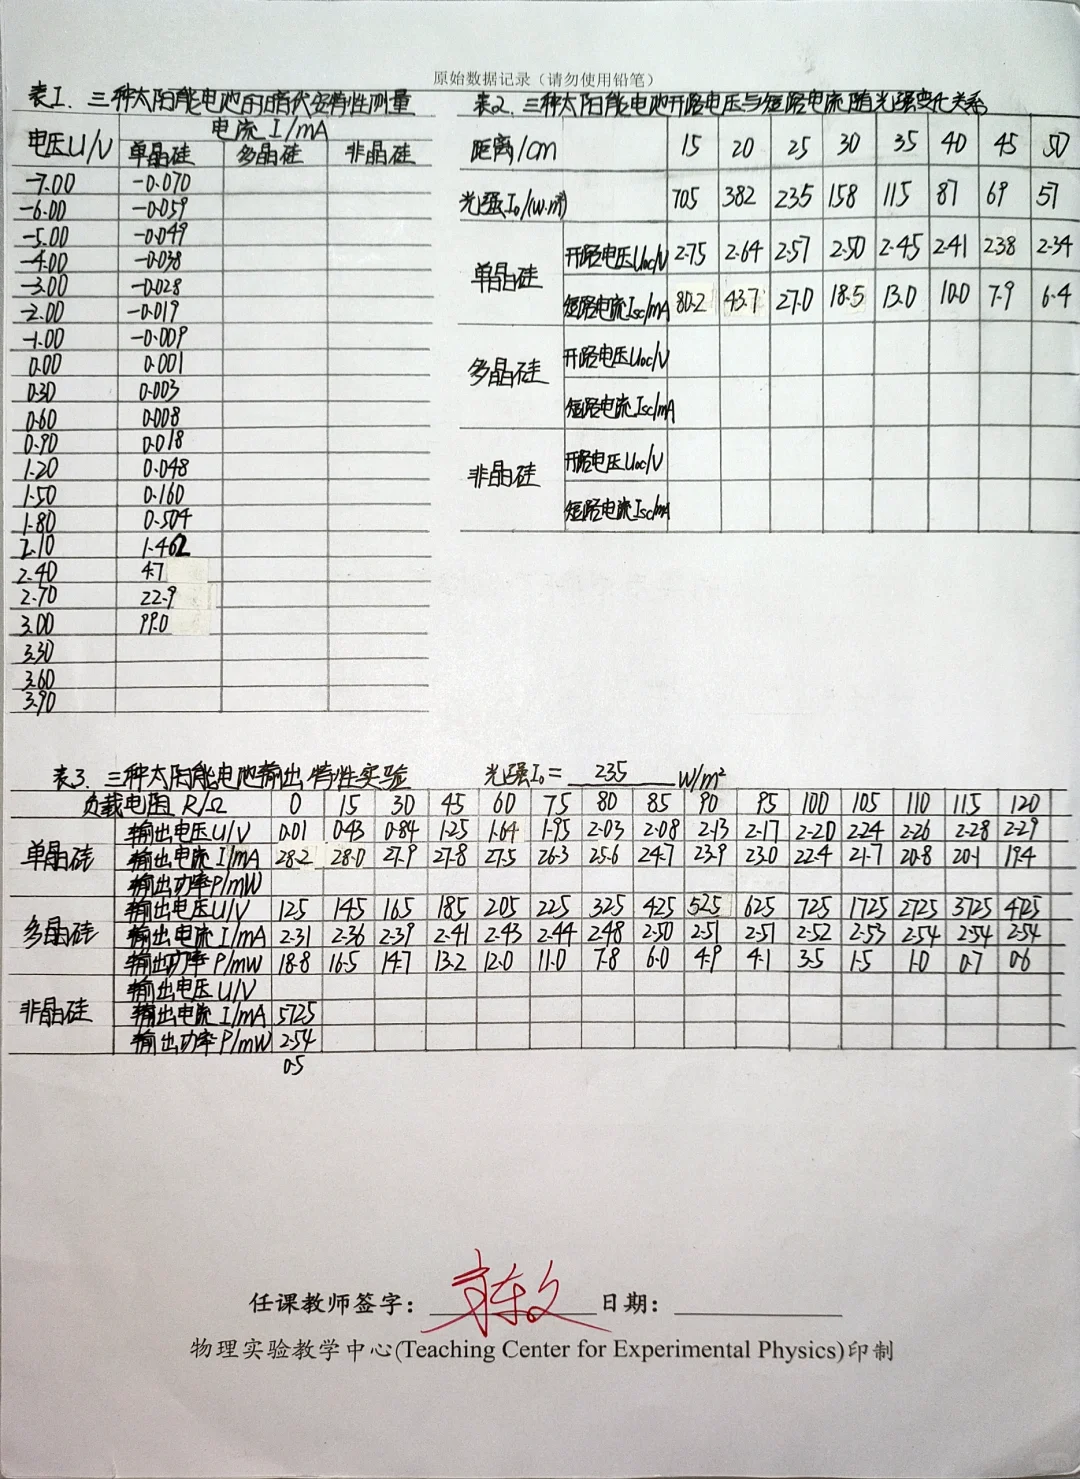 原始数据记录（请勿使用铅笔）
表1. 三种太阳能电池的暗伏安特性测量
电压U/V 电流 I/mA
单晶硅 多晶硅 非晶硅
-7.00 -0.070
-6.00 -0.059
-5.00 -0.049
-4.00 -0.038
-3.00 -0.028
-2.00 -0.019
-1.00 -0.009
0.00 0.001
0.30 0.003
0.60 0.008
0.90 0.018
1.20 0.048
1.50 0.160
1.80 0.504
2.10 1.462
2.40 4.7
2.70 22.9
3.00 99.0
3.30
3.60
3.90
表2. 三种太阳能电池开路电压与短路电流随光强变化关系
距离/cm 15 20 25 30 35 40 45 50
光强I₀/(W·m²) 705 382 235 158 115 87 69 57
单晶硅 开路电压Uoc/V 2.75 2.64 2.57 2.50 2.45 2.41 2.38 2.34
短路电流Isc/mA 80.2 43.7 27.0 18.5 13.0 10.0 7.9 6.4
多晶硅 开路电压Uoc/V
短路电流Isc/mA
非晶硅 开路电压Uoc/V
短路电流Isc/mA
表3. 三种太阳能电池输出特性实验 光强I₀= 235 W/m²
负载电阻 R/Ω 0 15 30 45 60 75 80 85 90 95 100 105 110 115 120
单晶硅 输出电压U/V 0.01 0.43 0.84 1.25 1.64 1.95 2.03 2.08 2.13 2.17 2.20 2.24 2.26 2.28 2.29
输出电流 I/mA 28.2 28.0 27.9 27.8 27.5 26.3 25.6 24.7 23.9 23.0 22.4 21.7 20.8 20.1 19.4
输出功率P/mW
多晶硅 输出电压U/V 125 145 165 185 205 225 325 425 525 625 725 1725 2725 3725 4725
输出电流 I/mA 2.31 2.36 2.39 2.41 2.43 2.44 2.48 2.50 2.51 2.51 2.52 2.53 2.54 2.54 2.54
输出功率 P/mW 18.8 16.5 14.7 13.2 12.0 11.0 7.8 6.0 4.9 4.1 3.5 1.5 1.0 0.7 0.6
非晶硅 输出电压U/V
输出电流 I/mA 5725
输出功率 P/mW 2.54
0.5
任课教师签字： 日期：
物理实验教学中心(Teaching Center for Experimental Physics)印制